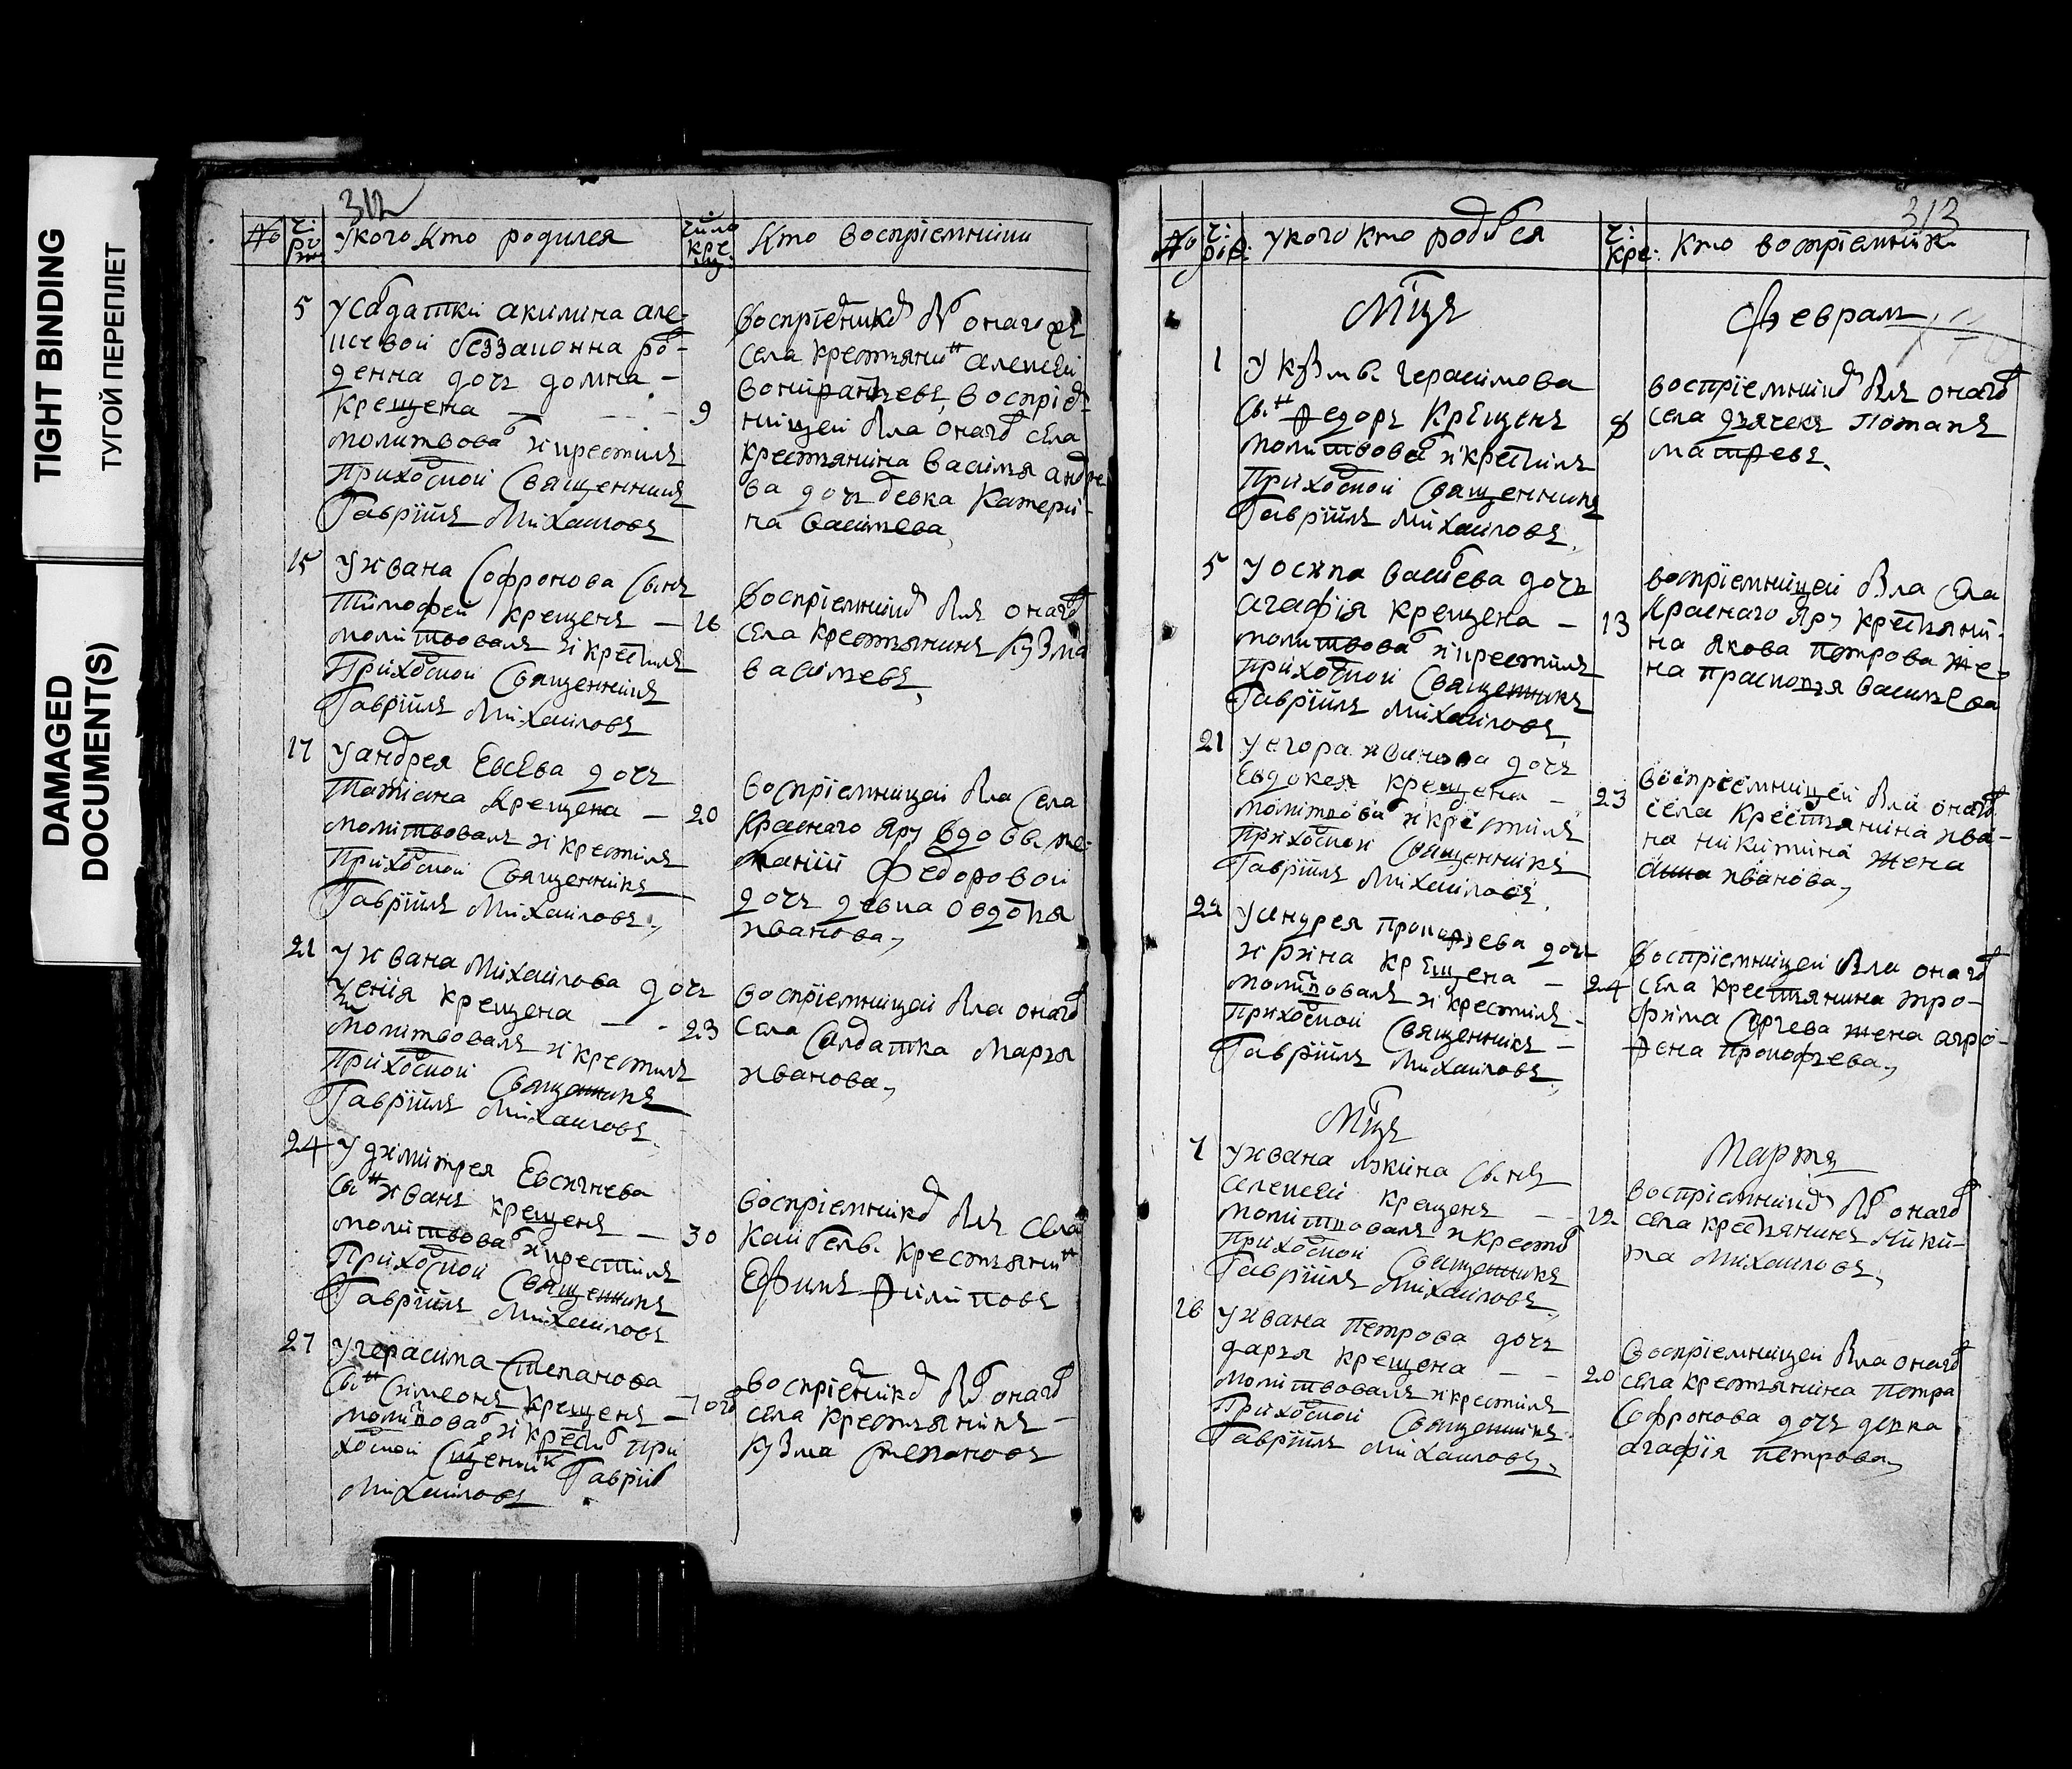 TIGHT BINDING
ТУГОЙ ПЕРЕПЛЕТ
DAMAGED
DOCUMENT(S)
312
№
чи: рож
у кого кто родился
число креще:
кто воспріемники
5
у салдатки акилина але
шевой беззаконна ро
денна дочь домна —
крещена — — — 9
молитвовал и крестилъ
Приходской Священникъ
Гавріилъ Михаиловъ
воспріемникомъ былъ онаго же
села крестьянинъ алексей
воспріем
ницей была онаго села
крестьянина василья андре
ва дочь девка катери
на васильева
15
у ивана Софронова Сынъ
тимофей крещенъ — 16
молитвовалъ и крестилъ
Приходской Священникъ
Гавріилъ Михаиловъ
воспріемникомъ былъ онаго
села крестьянинъ кузма
васильевъ,
17
у андрея Евсева дочь
татиана крещена — 20
молитвовалъ и крестилъ
приходской Священникъ
Гавріилъ Михаиловъ,
воспріемницей была села
краснаго яру вдовы ме
ланіи федоровой
дочь девка овдотья
иванова,
21
у ивана Михаилова дочь
крещена — - 23
молитвовалъ и крестилъ
приходской Священникъ
Гавріилъ Михаиловъ,
воспріемницей была онаго
села салдатка марья
иванова,
24
у димитрея Евсигнева
сынъ иванъ крещенъ — 30
молитвовал и крестилъ
Приходской Священникъ
Гавріилъ Михаиловъ
воспріемникомъ былъ села
кайбелы крестьянинъ
Ефимъ филиповъ
27
у герасима Степанова
сынъ симеонъ крещенъ —
молитвовал и крестил при
ходской Священник Гавріил
Михаиловъ
воспріемникомъ былъ онаго
села крестьянинъ —
кузма степановъ
313
№
чи: рож:
у кого кто родился
чи: кре:
кто воспріемники
Мцъ
Февраль
1
у кузмы герасимова
сын федоръ крещенъ 8
молитвовал и крестилъ
Приходской Священникъ
Гавріилъ Михаиловъ,
воспріемникомъ былъ онаго
села дьячекъ Потапъ
матвевъ,
5
у осипа васильева дочь
агафія крещена — 13
молитвовал и крестилъ
приходской Священникъ
Гавріилъ Михаиловъ
воспріемницей была села
краснаго яру крестьяни
на якова петрова же
на прасковья васильева
21
у егора иванова дочь
Евдокея крещена — 23
молитвовал и крестилъ
приходской Священникъ
Гавріилъ Михаиловъ,
воспріемницей была онаго
села крестьянина ива
на никитина жена
анна иванова,
22
у андрея прокофьева дочь
ирина крещена — 24
молитвовалъ и крестилъ
приходской Священникъ —
Гавріилъ Михаиловъ,
воспріемницей была онаго
села крестьянина тро
фима сергева жена афро
фена прокофьева,
Мцъ
Мартъ
7
у ивана лукина сынъ
алексей крещенъ — 12
молитвовалъ и крестил
приходской Священникъ
Гавріилъ Михаиловъ,
воспріемникомъ был онаго
села крестьянинъ ники
та михаиловъ,
16
у ивана петрова дочь
дарья крещена — — 20
молитвовалъ и крестилъ
Приходской Священникъ
Гавріилъ Михаиловъ,
воспріемницей была онаго
села крестьянина петра
Софронова дочь девка
агафія петрова,